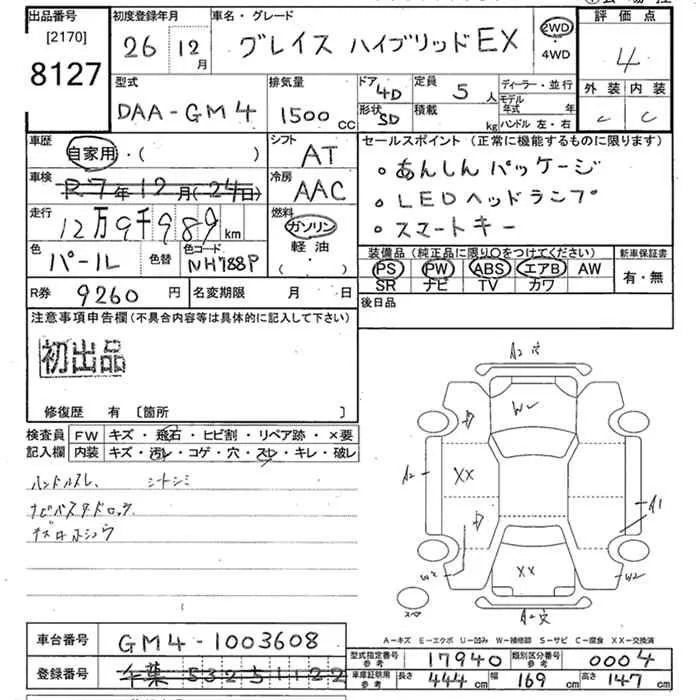 出品番号 初度登録年月 車名・グレード 評価点
[2170] 8127
26年 12月 グレイス ハイブリッド EX 2WD・4WD 4
型式 排気量 ドア 4D 定員 5人 ディーラー・並行 外装 内装
DAA-GM4 1500cc 形状 SD 積載 kg モデル年式 年 C C
ハンドル 左・右
車歴 シフト セールスポイント(正常に機能するものに限ります)
自家用・( ) AT
・あんしんパッケージ
車検 冷房
R7年12月(24日) AAC
・LEDヘッドランプ
走行 燃料
12万9千989km ガソリン
・スマートキー
軽油
・( )
色 色替 色コード
パール NH788P
装備品(純正品に限り○をつけてください) 新車保証書
PS PW ABS エアB AW 有・無
SR ナビ TV カワ
R券 9260円 名変期限 月 日
後日品
注意事項申告欄(不具合内容等は具体的に記入して下さい)
初出品
修復歴 有〔箇所 〕
検査員 FW キズ・飛石・ヒビ割・リペア跡・×要
記入欄 内装 キズ・汚レ・コゲ・穴・スレ・キレ・破レ
ハンドルスレ シートシミ
A2
W
A2 XX A1
W2 XX W2
スペア
A-キズ E-エクボ U-凹み W-補修跡 S-サビ C-腐食 XX-交換済
車台番号 GM4-1003608
型式指定番号 参考 17940 類別区分番号 参考 0004
登録番号 千葉 532 5 1122
車庫証明用 参考 長さ 444cm 幅 169cm 高さ 147cm